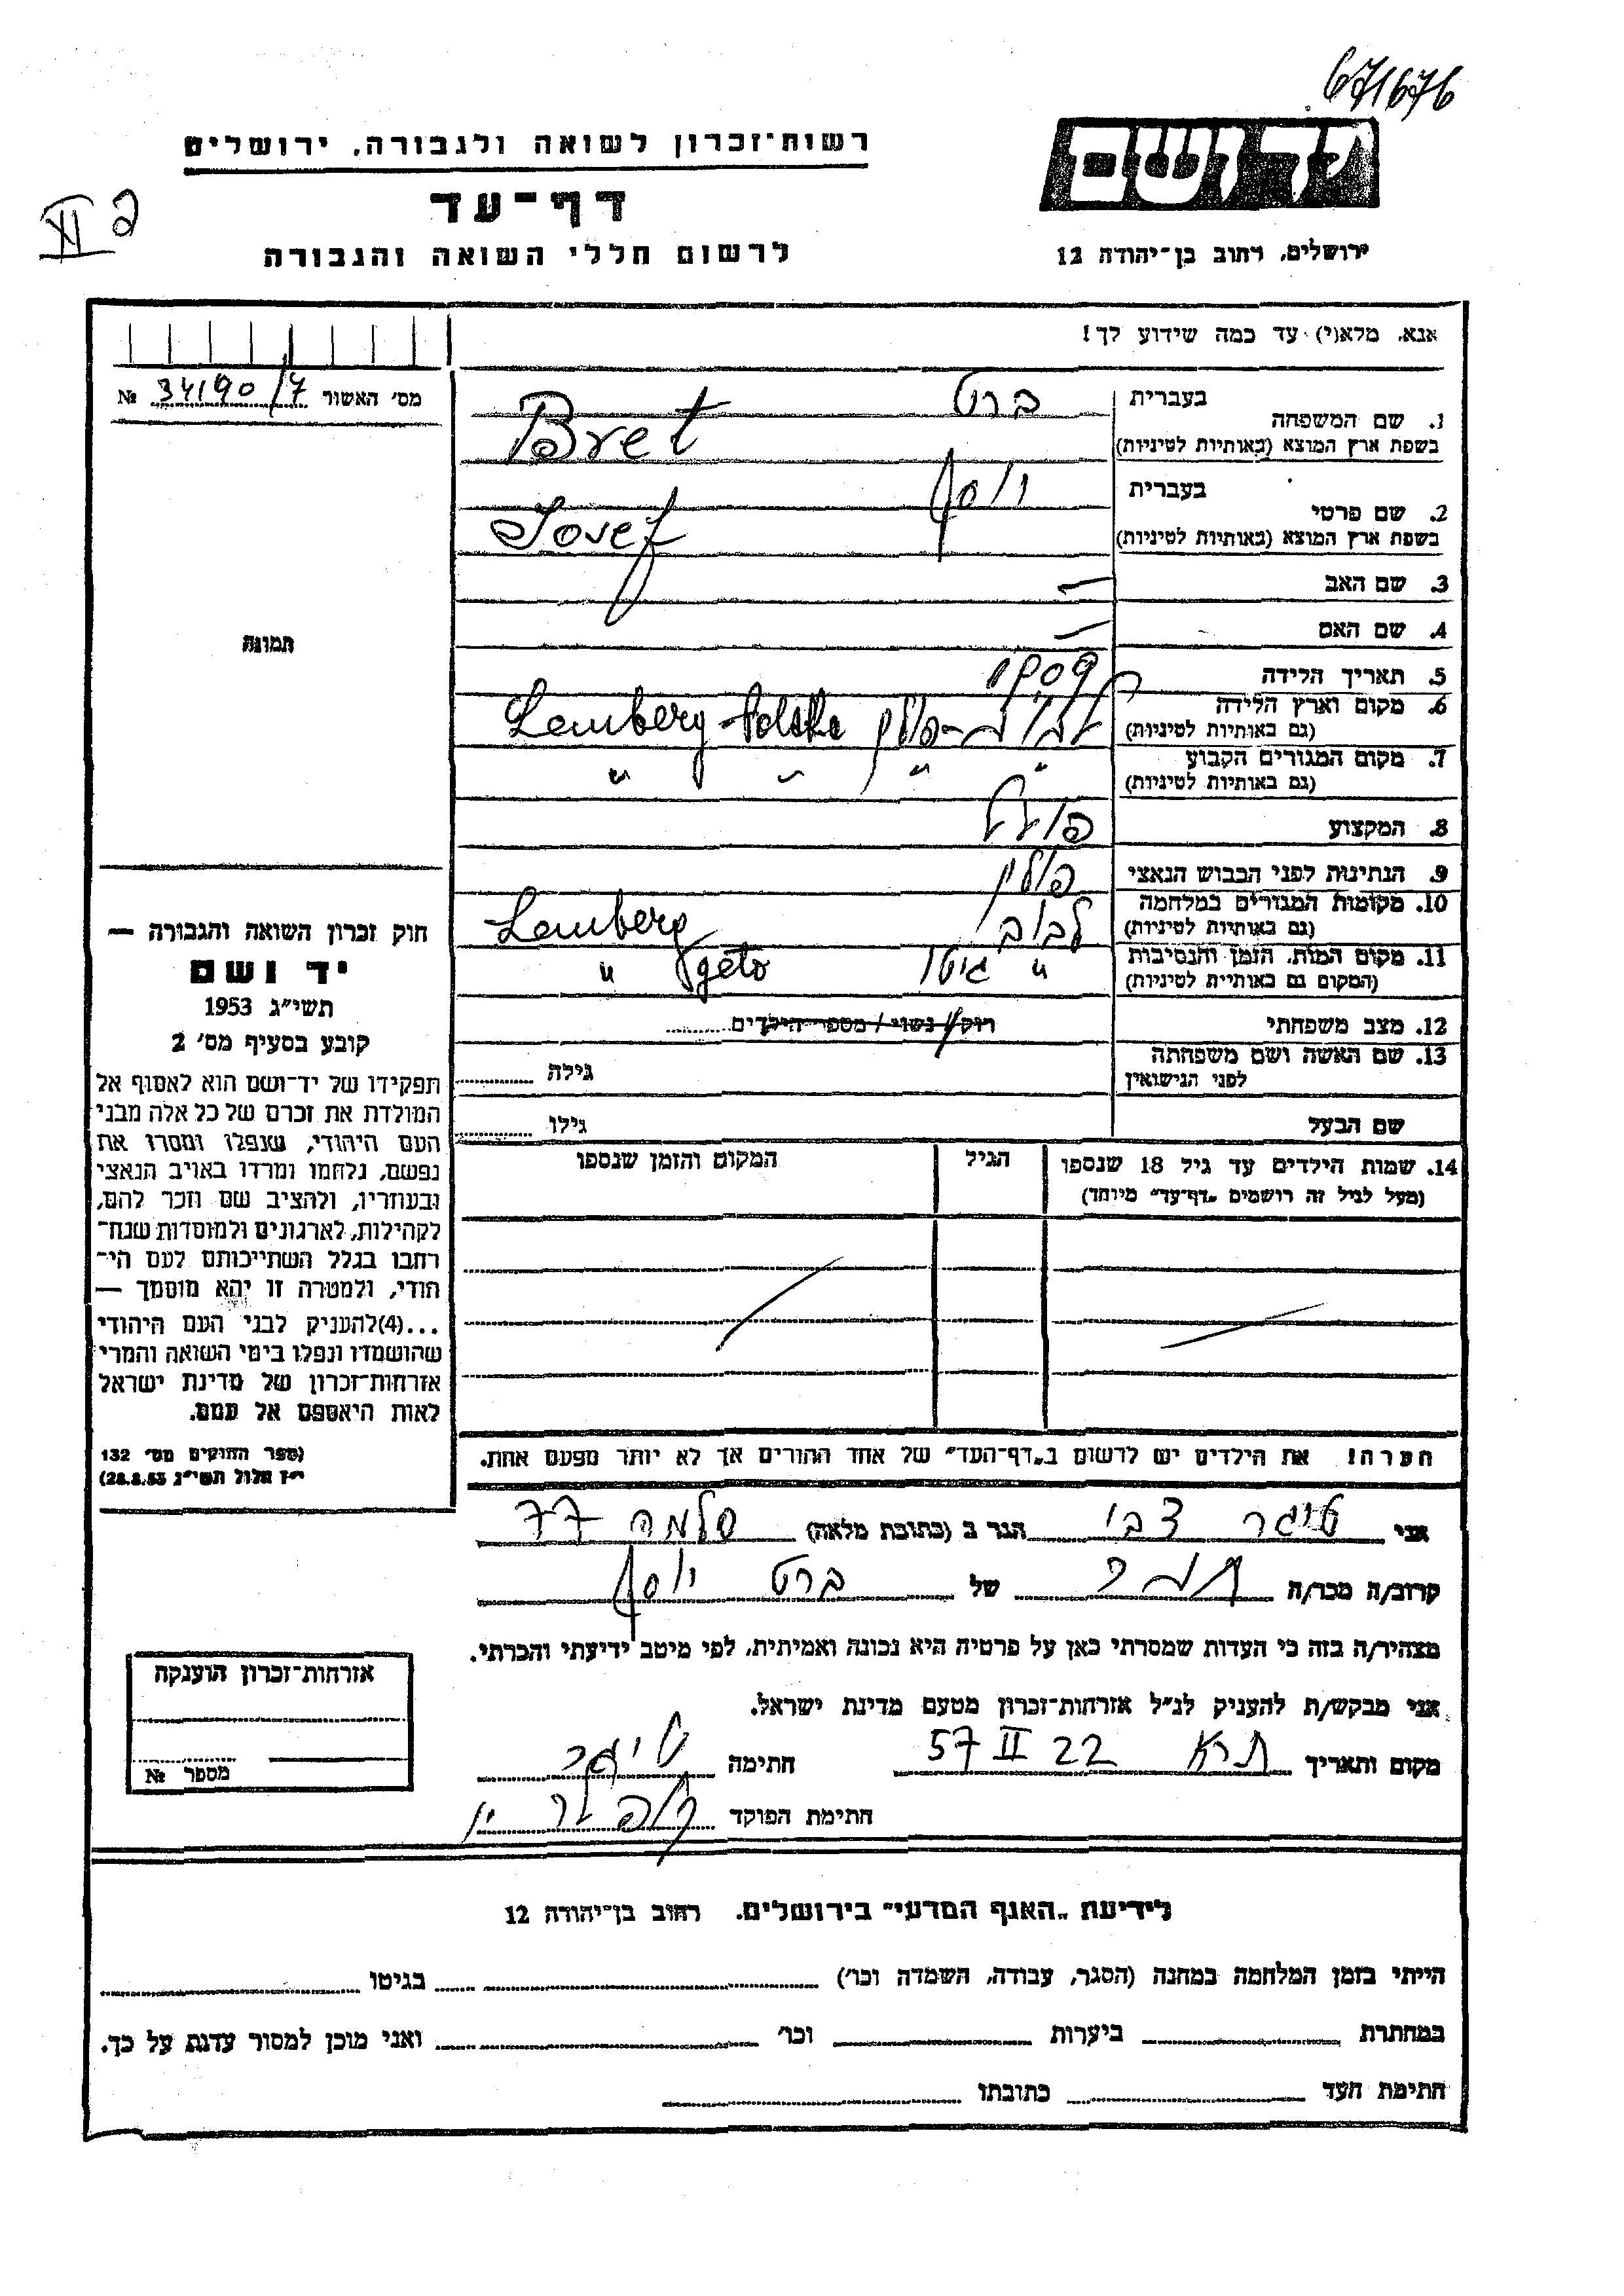 671676
יד ושם
רשות־זכרון לשואה ולגבורה, ירושלים
דף־עד
לרשום חללי השואה והגבורה
ירושלים, רחוב בן־יהודה 12
XI
אנא, מלא(י) עד כמה שידוע לך!
מס׳ האשור 34190/7 №
תמונה
1. שם המשפחה בעברית ברט
בשפת ארץ המוצא (באותיות לטיניות) Bret
2. שם פרטי בעברית יוסף
בשפת ארץ המוצא (באותיות לטיניות) Josef
3. שם האב —
4. שם האם —
5. תאריך הלידה 1909
6. מקום וארץ הלידה
(גם באותיות לטיניות) פולין Lemberg - Polska
7. מקום המגורים הקבוע " " " "
(גם באותיות לטיניות)
8. המקצוע פועל
9. הנתינות לפני הכבוש הנאצי פולין
10. מקומות המגורים במלחמה
(גם באותיות לטיניות) לבוב Lemberg
11. מקום המות, הזמן והנסיבות " גיטו geto "
(המקום גם באותיית לטיניות)
12. מצב משפחתי רוק/ נשוי / מספר הילדים
13. שם האשה ושם משפחתה
לפני הנישואין גילה
שם הבעל גילו
14. שמות הילדים עד גיל 18 שנספו הגיל המקום והזמן שנספו
(מעל לגיל זה רושמים „דף־עד״ מיוחד)
חוק זכרון השואה והגבורה —
יד ושם
תשי״ג 1953
קובע בסעיף מס׳ 2
תפקידו של יד־ושם הוא לאסוף אל
המולדת את זכרם של כל אלה מבני
העם היהודי, שנפלו ומסרו את
נפשם, נלחמו ומרדו באויב הנאצי
ובעוזריו, ולהציב שם וזכר להם,
לקהילות, לארגונים ולמוסדות שנח־
רחבו בגלל השתייכותם לעם הי־
הודי, ולמטרה זו יהא מוסמך —
...(4)להעניק לבני העם היהודי
שהושמדו ונפלו בימי השואה והמרי
אזרחות־זכרון של מדינת ישראל
לאות היאספם אל עמם.
(ספר החוקים מס׳ 132
י״ז אלול תשי״ג 28.8.53)
הערה! את הילדים יש לרשום ב„דף־העד״ של אחד ההורים אך לא יותר מפעם אחת.
אני טיגר צבי הגר ב (כתובת מלאה) סלמה 77
קרוב/ה מכר/ה של ברט יוסף
מצהיר/ה בזה כי העדות שמסרתי כאן על פרטיה היא נכונה ואמיתית, לפי מיטב ידיעתי והכרתי.
אני מבקש/ת להעניק לנ״ל אזרחות־זכרון מטעם מדינת ישראל.
מקום ותאריך ת״א 22 II 57 חתימה טיגר
חתימת הפוקד
אזרחות־זכרון הוענקה
מספר №
לידיעת „האגף המדעי״ בירושלים. רחוב בן־יהודה 12
הייתי בזמן המלחמה במחנה (הסגר, עבודה, השמדה וכו׳) בגיטו
במחתרת ביערות וכו׳ ואני מוכן למסור עדות על כך.
חתימת העד כתובתו